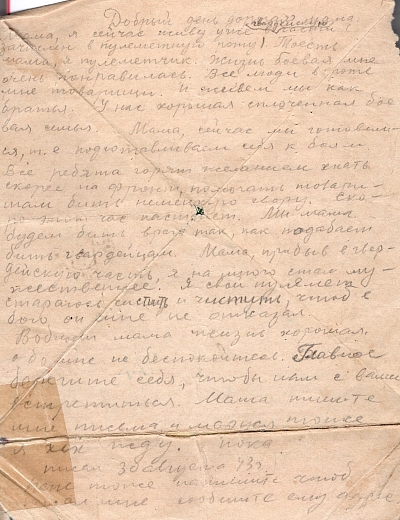 Добрый день дорогая мама
Мама, я сейчас живу уже в гвардейской части
зачислен в пулеметную роту. Тоесть
мама, я пулеметчик. Жизнь боевая мне
очень понравилась. Все люди в роте
мне товарищи. И живем мы как
братья. У нас хорошая сплоченная бое
вая семья. Мама, сейчас мы готовим-
ся, т.е подготавливаем себя к боям
Все ребята горят желанием ехать
скорее на фронт, помогать товари-
щам бить немецкую свору. Ско-
ро этот час настанет. Мы мама
будем бить врага так, как подабает
бить гвардейцам. Мама, прибыв в гвар-
дейскую часть, я на много стал му-
жественнее. Я свой пулемет
стараюсь чистить и чистить, чтоб в
бою он мне не отказал.
Вобщем мама жизнь хорошая.
обо мне не беспокойтесь. Главное
берегите себя, чтобы нам с вами
встретиться. Мама пишите
мне письма и тоже
я их жду. пока
писал 30 августа 43 г.
тоже напишите чтоб
мне сообщите ему адрес